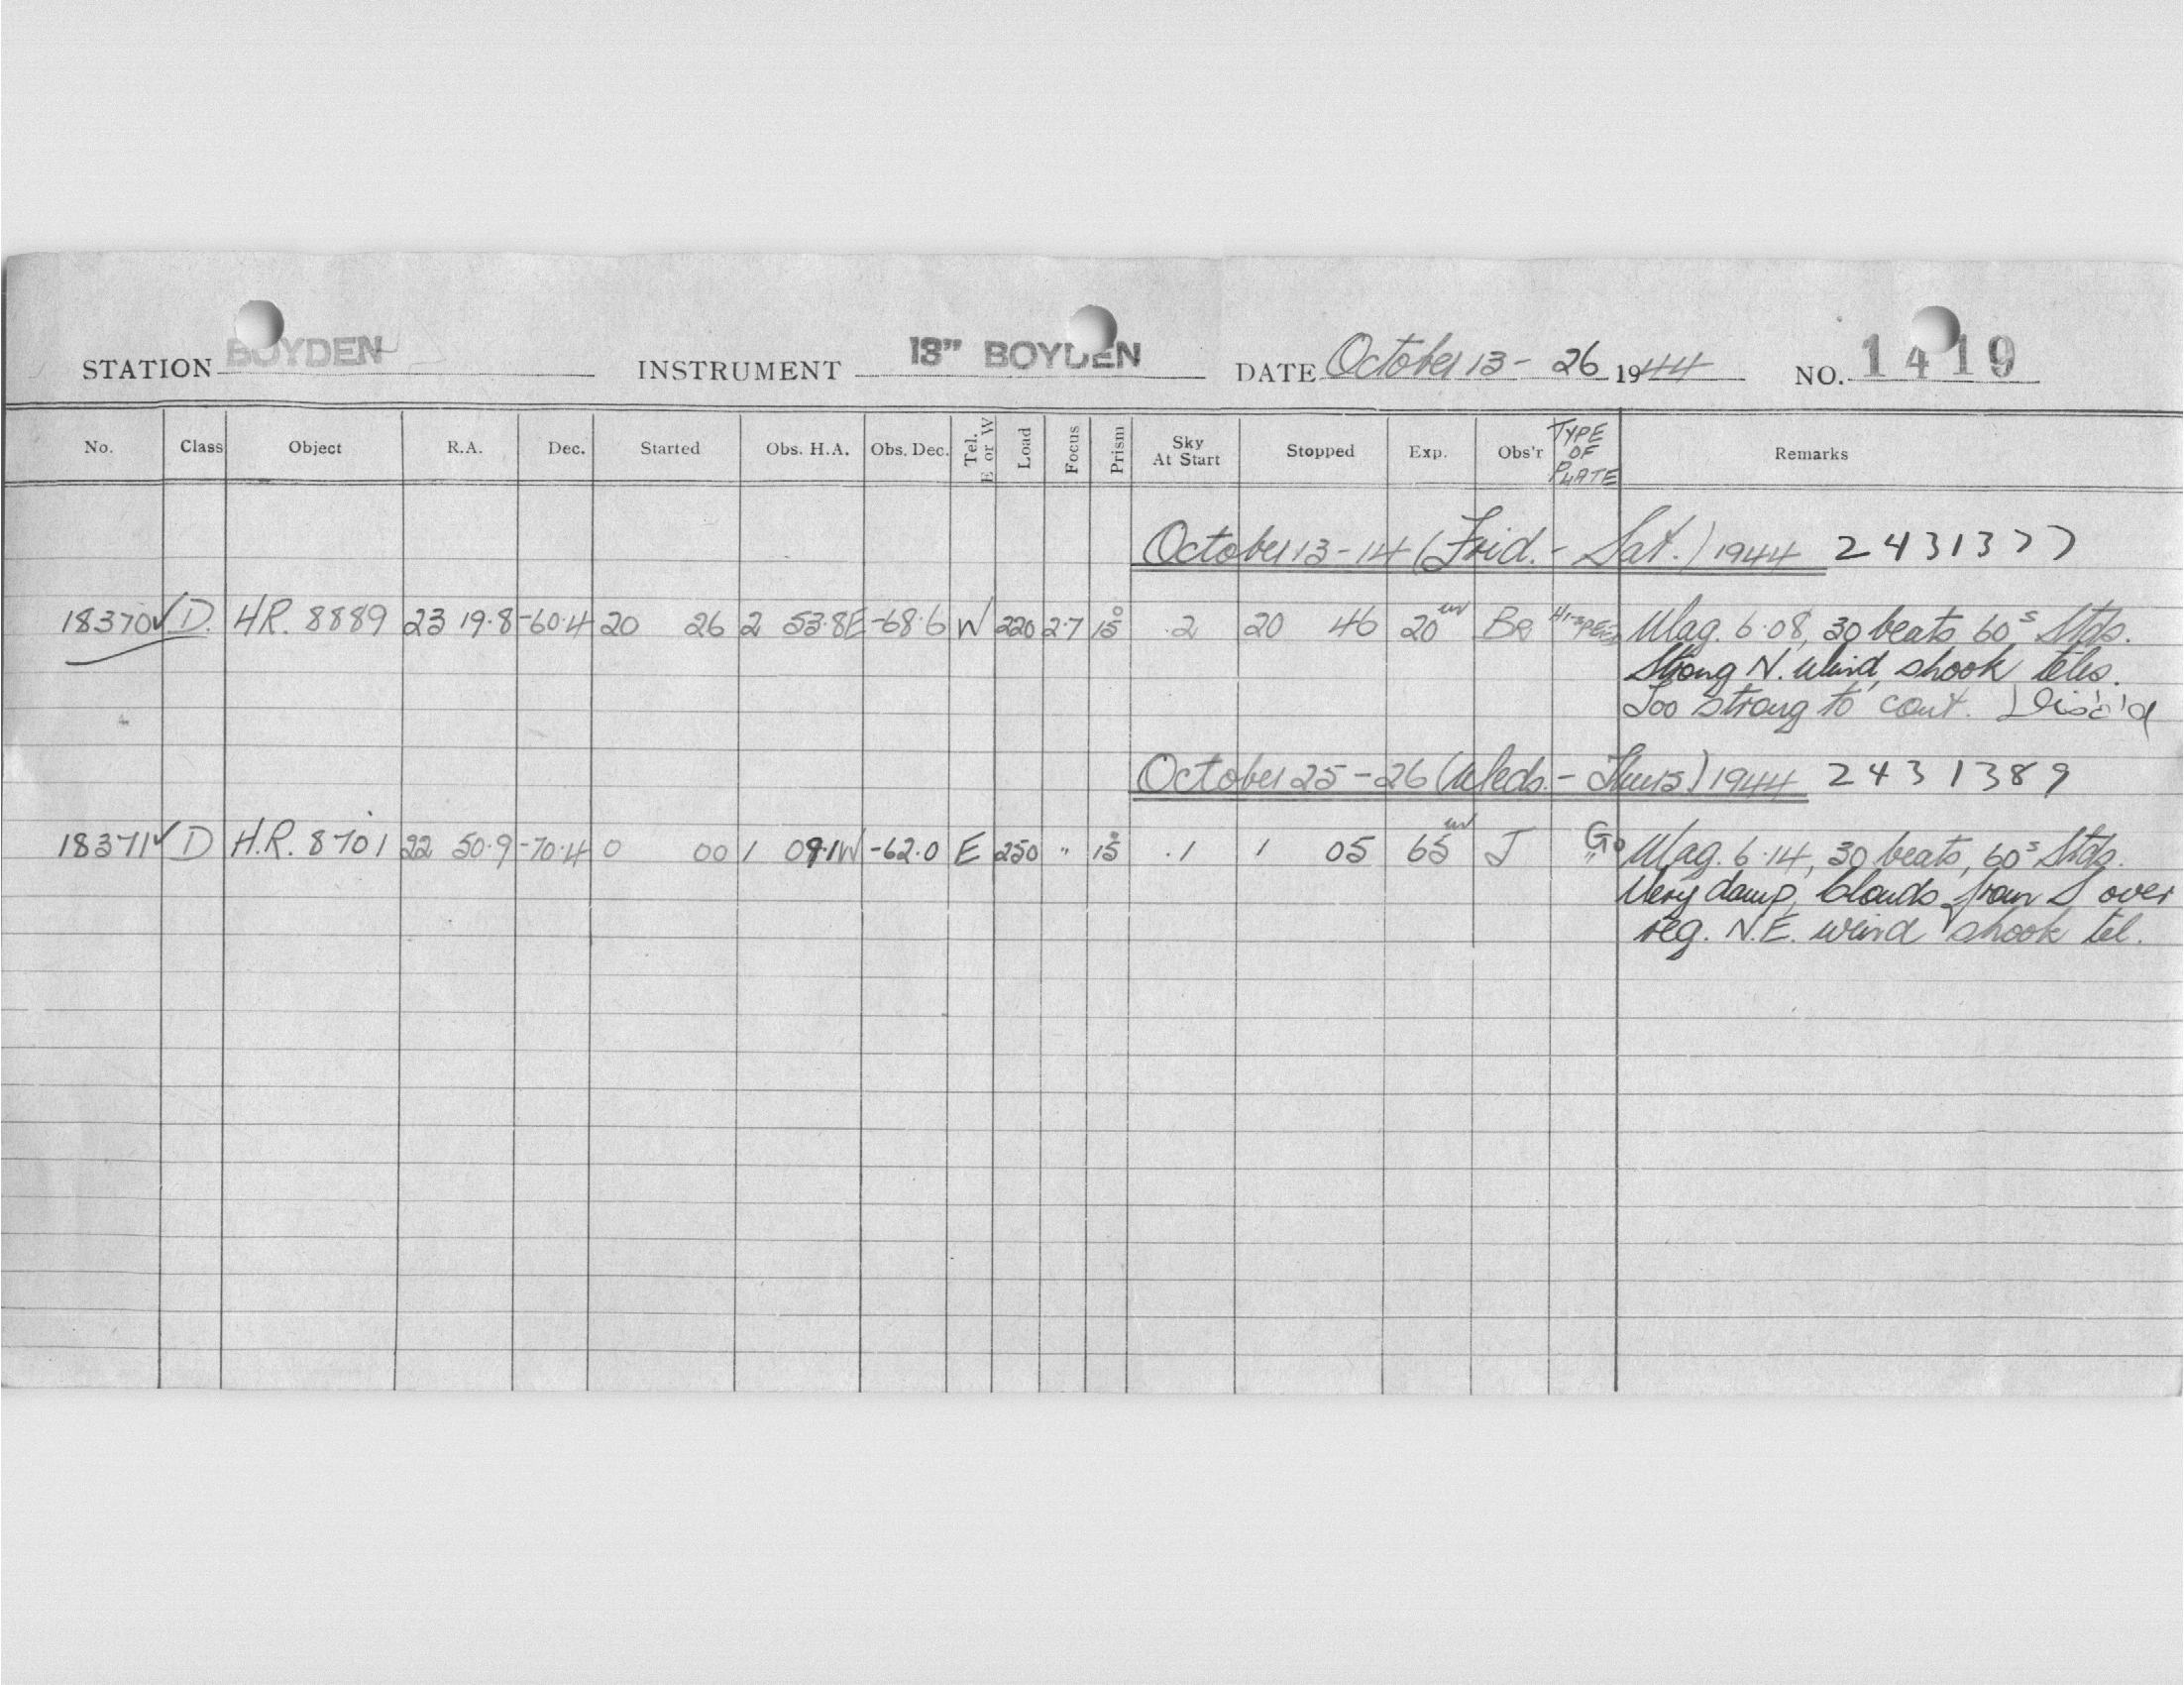 STATION BOYDEN INSTRUMENT 13" BOYDEN DATE October 13 - 26 1944 NO. 1419
No. Class Object R.A. Dec. Started Obs. H.A. Obs. Dec. Tel. E or W Load Focus Prism Sky At Start Stopped Exp. Obs'r TYPE OF PLATE Remarks
October 13-14 (Frid. - Sat.) 1944 2431377
18370✓ D. H.R. 8889 23 19.8 -60.4 20 26 2 53.8E -68.6 W 220 2.7 15° .2 20 46 20m Br HI-SPEED Mag. 6.08, 30 beats 60s Stds.
Strong N. wind, shook teles.
Too strong to cont. Disc'd
October 25-26 (Weds. - Thurs) 1944 2431389
18371✓ D H.R. 8701 22 50.9 -70.4 0 00 1 09.1W -62.0 E 250 " 15° .1 1 05 65m J " Go Mag. 6.14, 30 beats, 60s Stds.
Very damp, Clouds from S over
reg. N.E. wind shook tel.